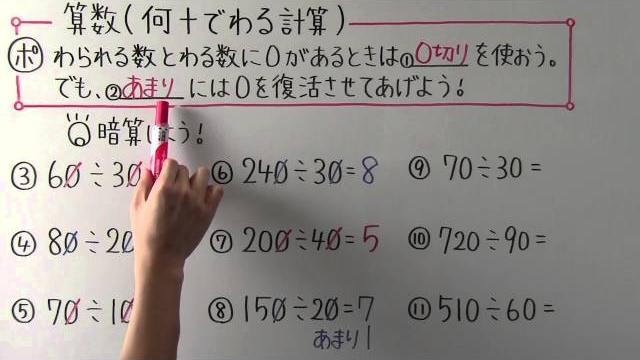 算数(何十でわる計算)
ポ わられる数とわる数に0があるときは①0切りを使おう。
でも、②あまりには0を復活させてあげよう!
暗算しよう!
③ 60÷30
④ 80÷20
⑤ 70÷10
⑥ 240÷30=8
⑦ 200÷40=5
⑧ 150÷20=7
あまり1
⑨ 70÷30=
⑩ 720÷90=
⑪ 510÷60=